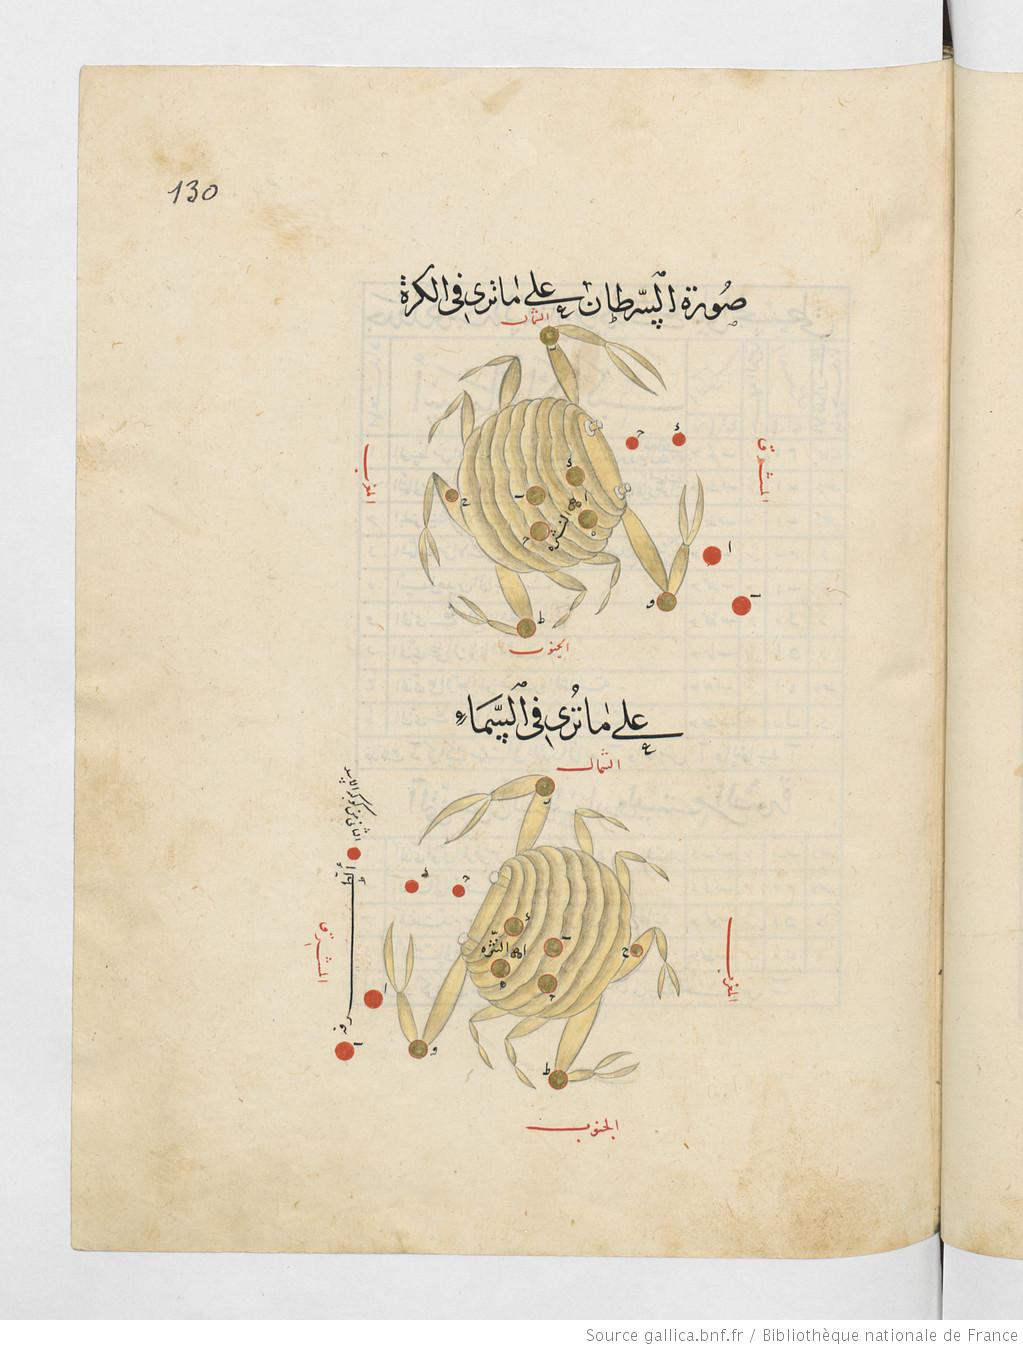 130
صورة السرطان على ما ترى في الكرة
الشمال
د
ح
المشرق
المغرب
د
ا
النثرة
ح
ه
ا
ا
و
ط
الجنوب
على ما ترى في السماء
الشمال
الثاني من كوكبة الاسد
الطر
فه
المشرق
المغرب
د
ح
د
النثرة
ه
ح
ح
ا
ا
و
ط
الجنوب
Source gallica.bnf.fr / Bibliothèque nationale de France